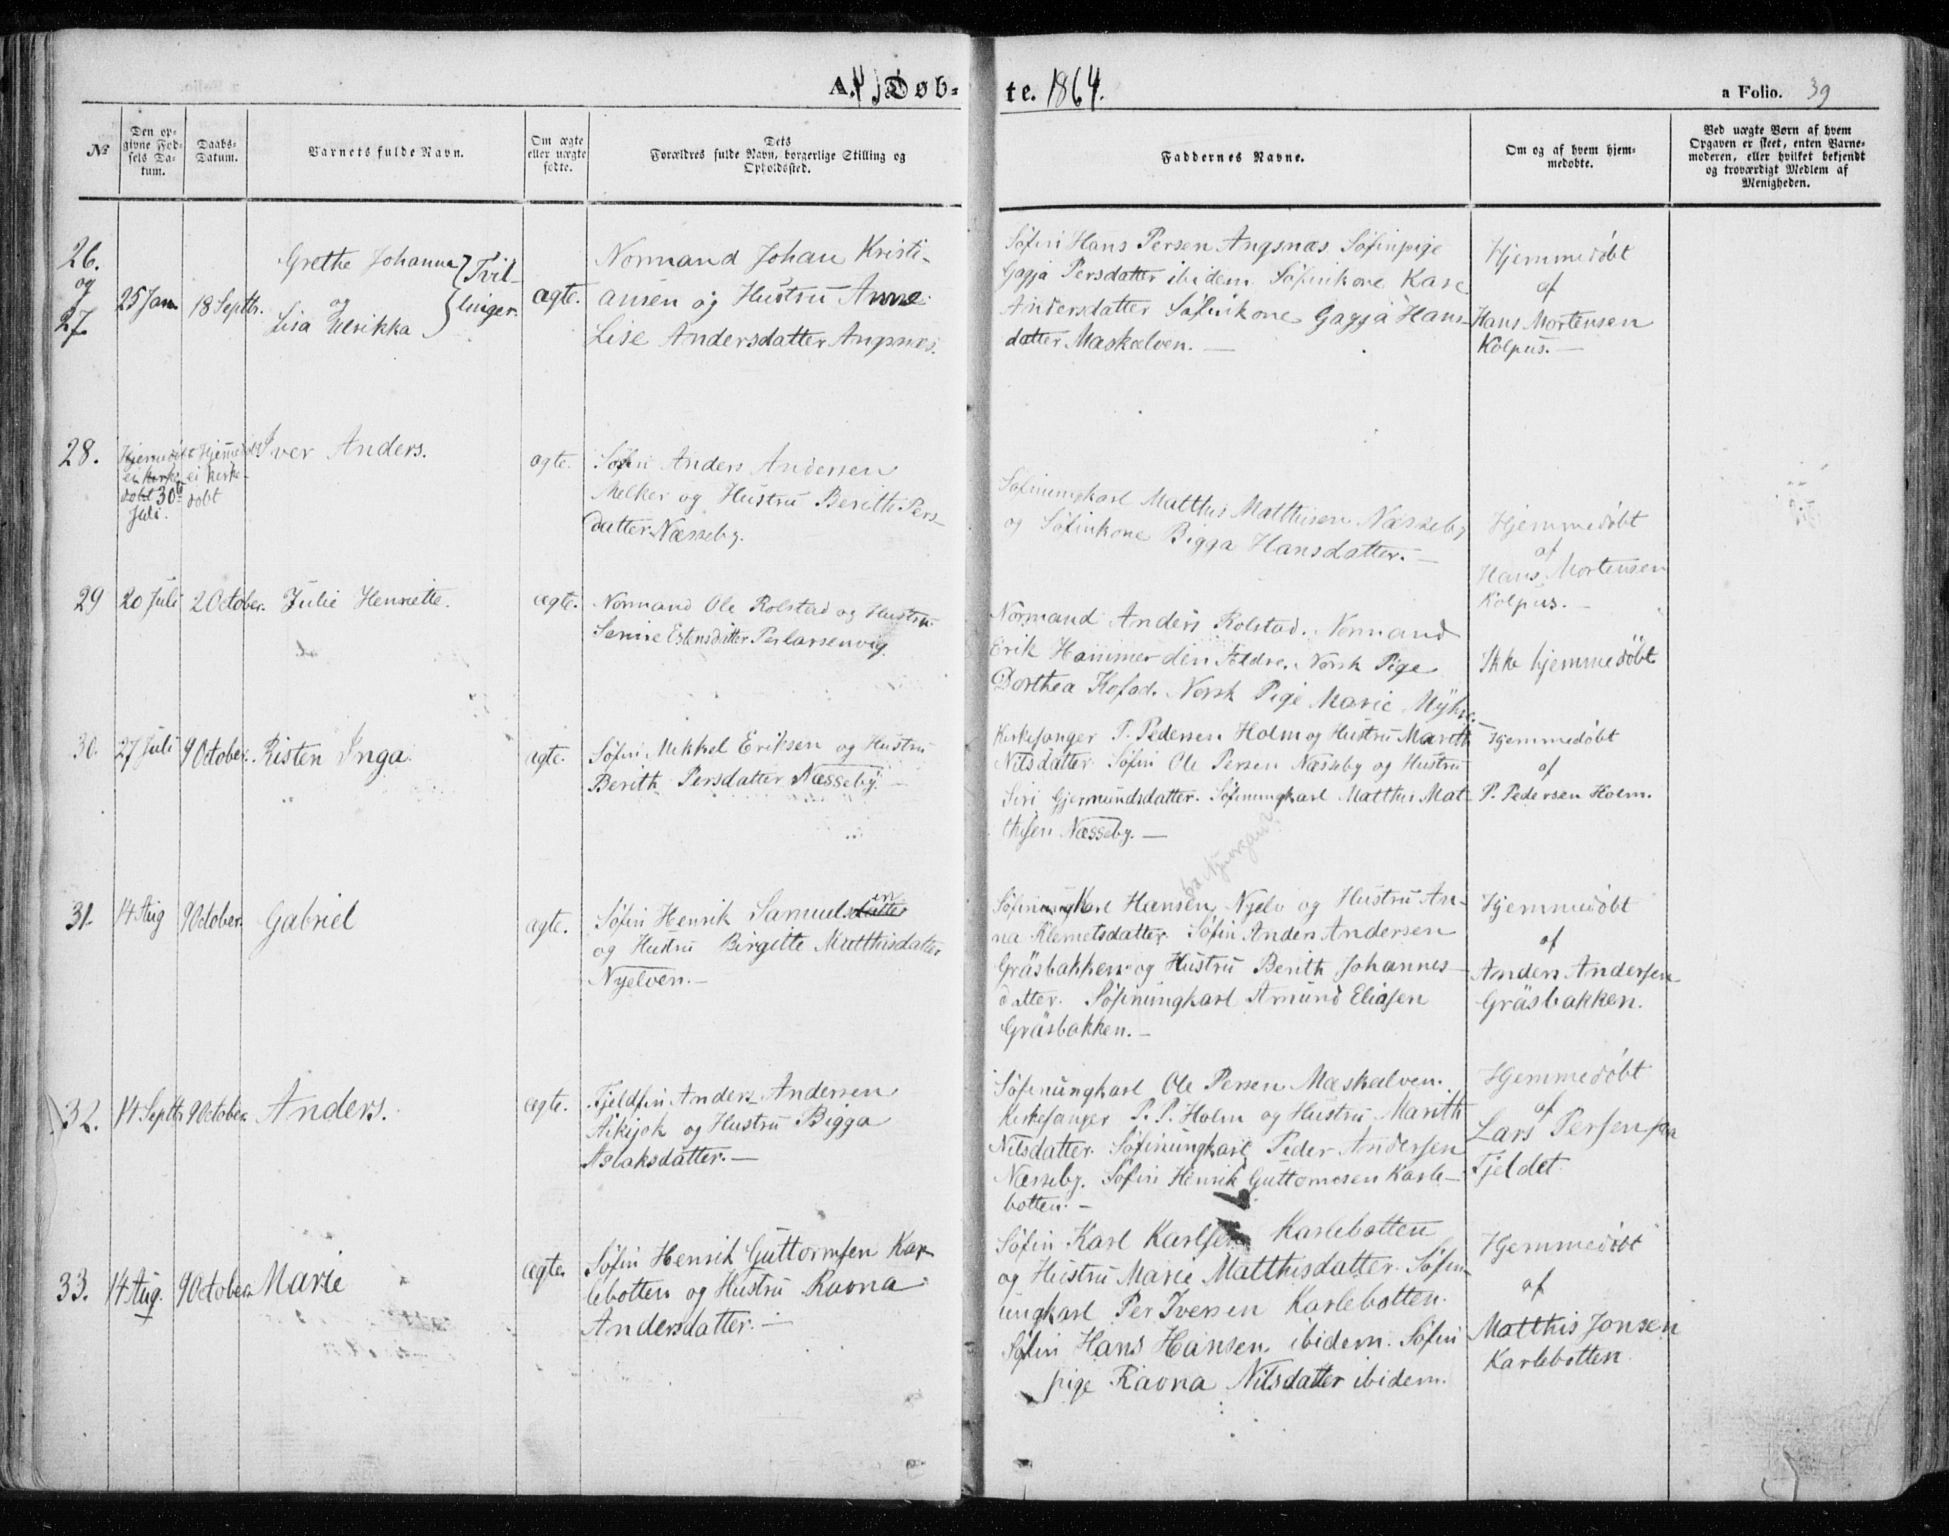 A. Døb=
te. 1864.
a Folio. 39
No
Den op-
givne Fød-
sels Da-
tum.
Daabs-
Datum.
Barnets fulde Navn.
Om ægte
eller uægte
fødte.
Dets
Forældres fulde Navn, borgerlige Stilling og
Opholdssted.
Faddernes Navne.
Om og af hvem hjem-
medøbte.
Ved uægte Børn af hvem
Opgaven er skeet, enten Barne-
moderen, eller hvilket bekjendt
og troværdigt Medlem af
Menigheden.
26.
og
27.
25 Jan
18 Septbr.
Grethe Johanna
og
Lisa Ulrikka
Tvil-
linger.
ægte.
Normand Johan Kristi-
ansen og Hustru Anne
Lise Andersdatter Angsnæs.
Søfin Hans Persen Angsnæs Søfinpige
Gagja Persdatter ibidem Søfinkone Kare
Andersdatter Søfinkone Gagja Hans-
datter Maskelven. —
Hjemmedøbt
af
Hans Mortensen
Kolpus. —
28.
Hjemedøbt
ei kirke-
døbt 30te
Juli.
Hjemmedøbt
ei kirke-
døbt
Iver Anders.
ægte.
Søfin Anders Andersen
Melker og Hustru Berith Pers-
datter Næsseby.
Søfinungkarl Matthis Mathisen Næsseby
og Søfinkone Bigga Hansdatter. —
Hjemmedøbt
af
Hans Mortensen
Kolpus. —
29
20 Juli
2 October.
Julie Henriette.
ægte.
Normand Ole Rolstad og Hustru
Senire Estensdatter Perlarsenvig.
Normand Anders Rolstad. Normand
Erik Hammer den Ældre. Norsk Pige
Dorthea Kofod. Norsk Pige Marie Myhre.
Ikke hjemmedøbt
30.
27 Juli
9 October.
Risten Inga.
ægte.
Søfin Mikkel Eriksen og Hustru
Berith Persdatter Næsseby. —
Kirkesanger P. Pedersen Holm og Hustru Marith
Nilsdatter. Søfin Ole Persen Næsseby og Hustru
Siri Gjermundsdatter. Søfinungkarl Matthis Mat-
thisen Næsseby. —
Hjemmedøbt
af
P. Pedersen Holm.
31.
14 Aug
9 October.
Gabriel
ægte.
Søfin Henrik Samuelsdatter
en
og Hustru Birgitte Matthisdatter
Nyelven. —
Søfinungkarl Hansen Nyelv og Hustru An-
na Klemetsdatter. Søfin Anders Andersen
Gräsbakken og Hustru Berith Johannes-
datter. Søfinungkarl Amund Eliasen
Gräsbakken. —
Hjemmedøbt
af
Anders Andersen
Gräsbakken.
32.
14 Septbr
9 October.
Anders.
ægte.
Fjeldfin Anders Andersen
Aikijok og Hustru Bigga
Aslaksdatter. —
Søfinungkarl Ole Persen Mæskelven.
Kirkesanger P. P. Holm og Hustru Marith
Nilsdatter. Søfinungkarl Peder Andersen
Næsseby. Søfin Henrik Guttormsen Karle-
botten. —
Hjemmedøbt
af
Lars Persen fra
Fjeldet.
33.
14 Aug.
9 October.
Marie
ægte.
Søfin Henrik Guttormsen Kar-
lebotten og Hustru Ravna
Andersdatter. —
Søfin Karl Karlsen Karlebotten
og Hustru Marie Matthisdatter. Søfin-
ungkarl Per Iversen Karlebotten.
Søfin Hans Hansen ibidem. Søfin
pige Ravna Nilsdatter ibidem.
Hjemmedøbt
af
Matthis Jonsen
Karlebotten.